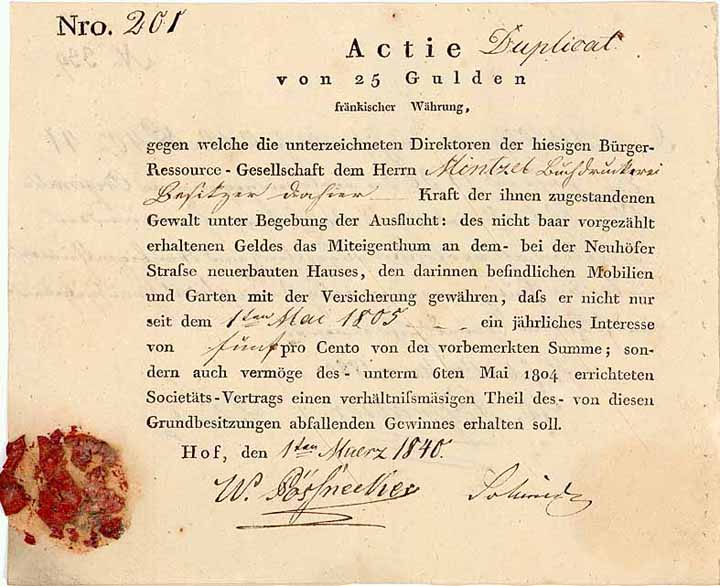 Nro. 201
Actie Duplicat
von 25 Gulden
fränkischer Währung,
gegen welche die unterzeichneten Direktoren der hiesigen Bürger-
Ressource-Gesellschaft dem Herrn Mintzel Buchdruckerei
Besitzer dahier Kraft der ihnen zugestandenen
Gewalt unter Begebung der Ausflucht: des nicht baar vorgezählt
erhaltenen Geldes das Miteigenthum an dem- bei der Neuhöfer
Strafse neuerbauten Hauses, den darinnen befindlichen Mobilien
und Garten mit der Versicherung gewähren, dafs er nicht nur
seit dem 1ten Mai 1805 ein jährliches Interesse
von fünf pro Cento von der vorbemerkten Summe; son-
dern auch vermöge des- unterm 6ten Mai 1804 errichteten
Societäts-Vertrags einen verhältnifsmäsigen Theil des- von diesen
Grundbesitzungen abfallenden Gewinnes erhalten soll.
Hof, den 1ten Maerz 1840.
W. Pößnecker Schmidt